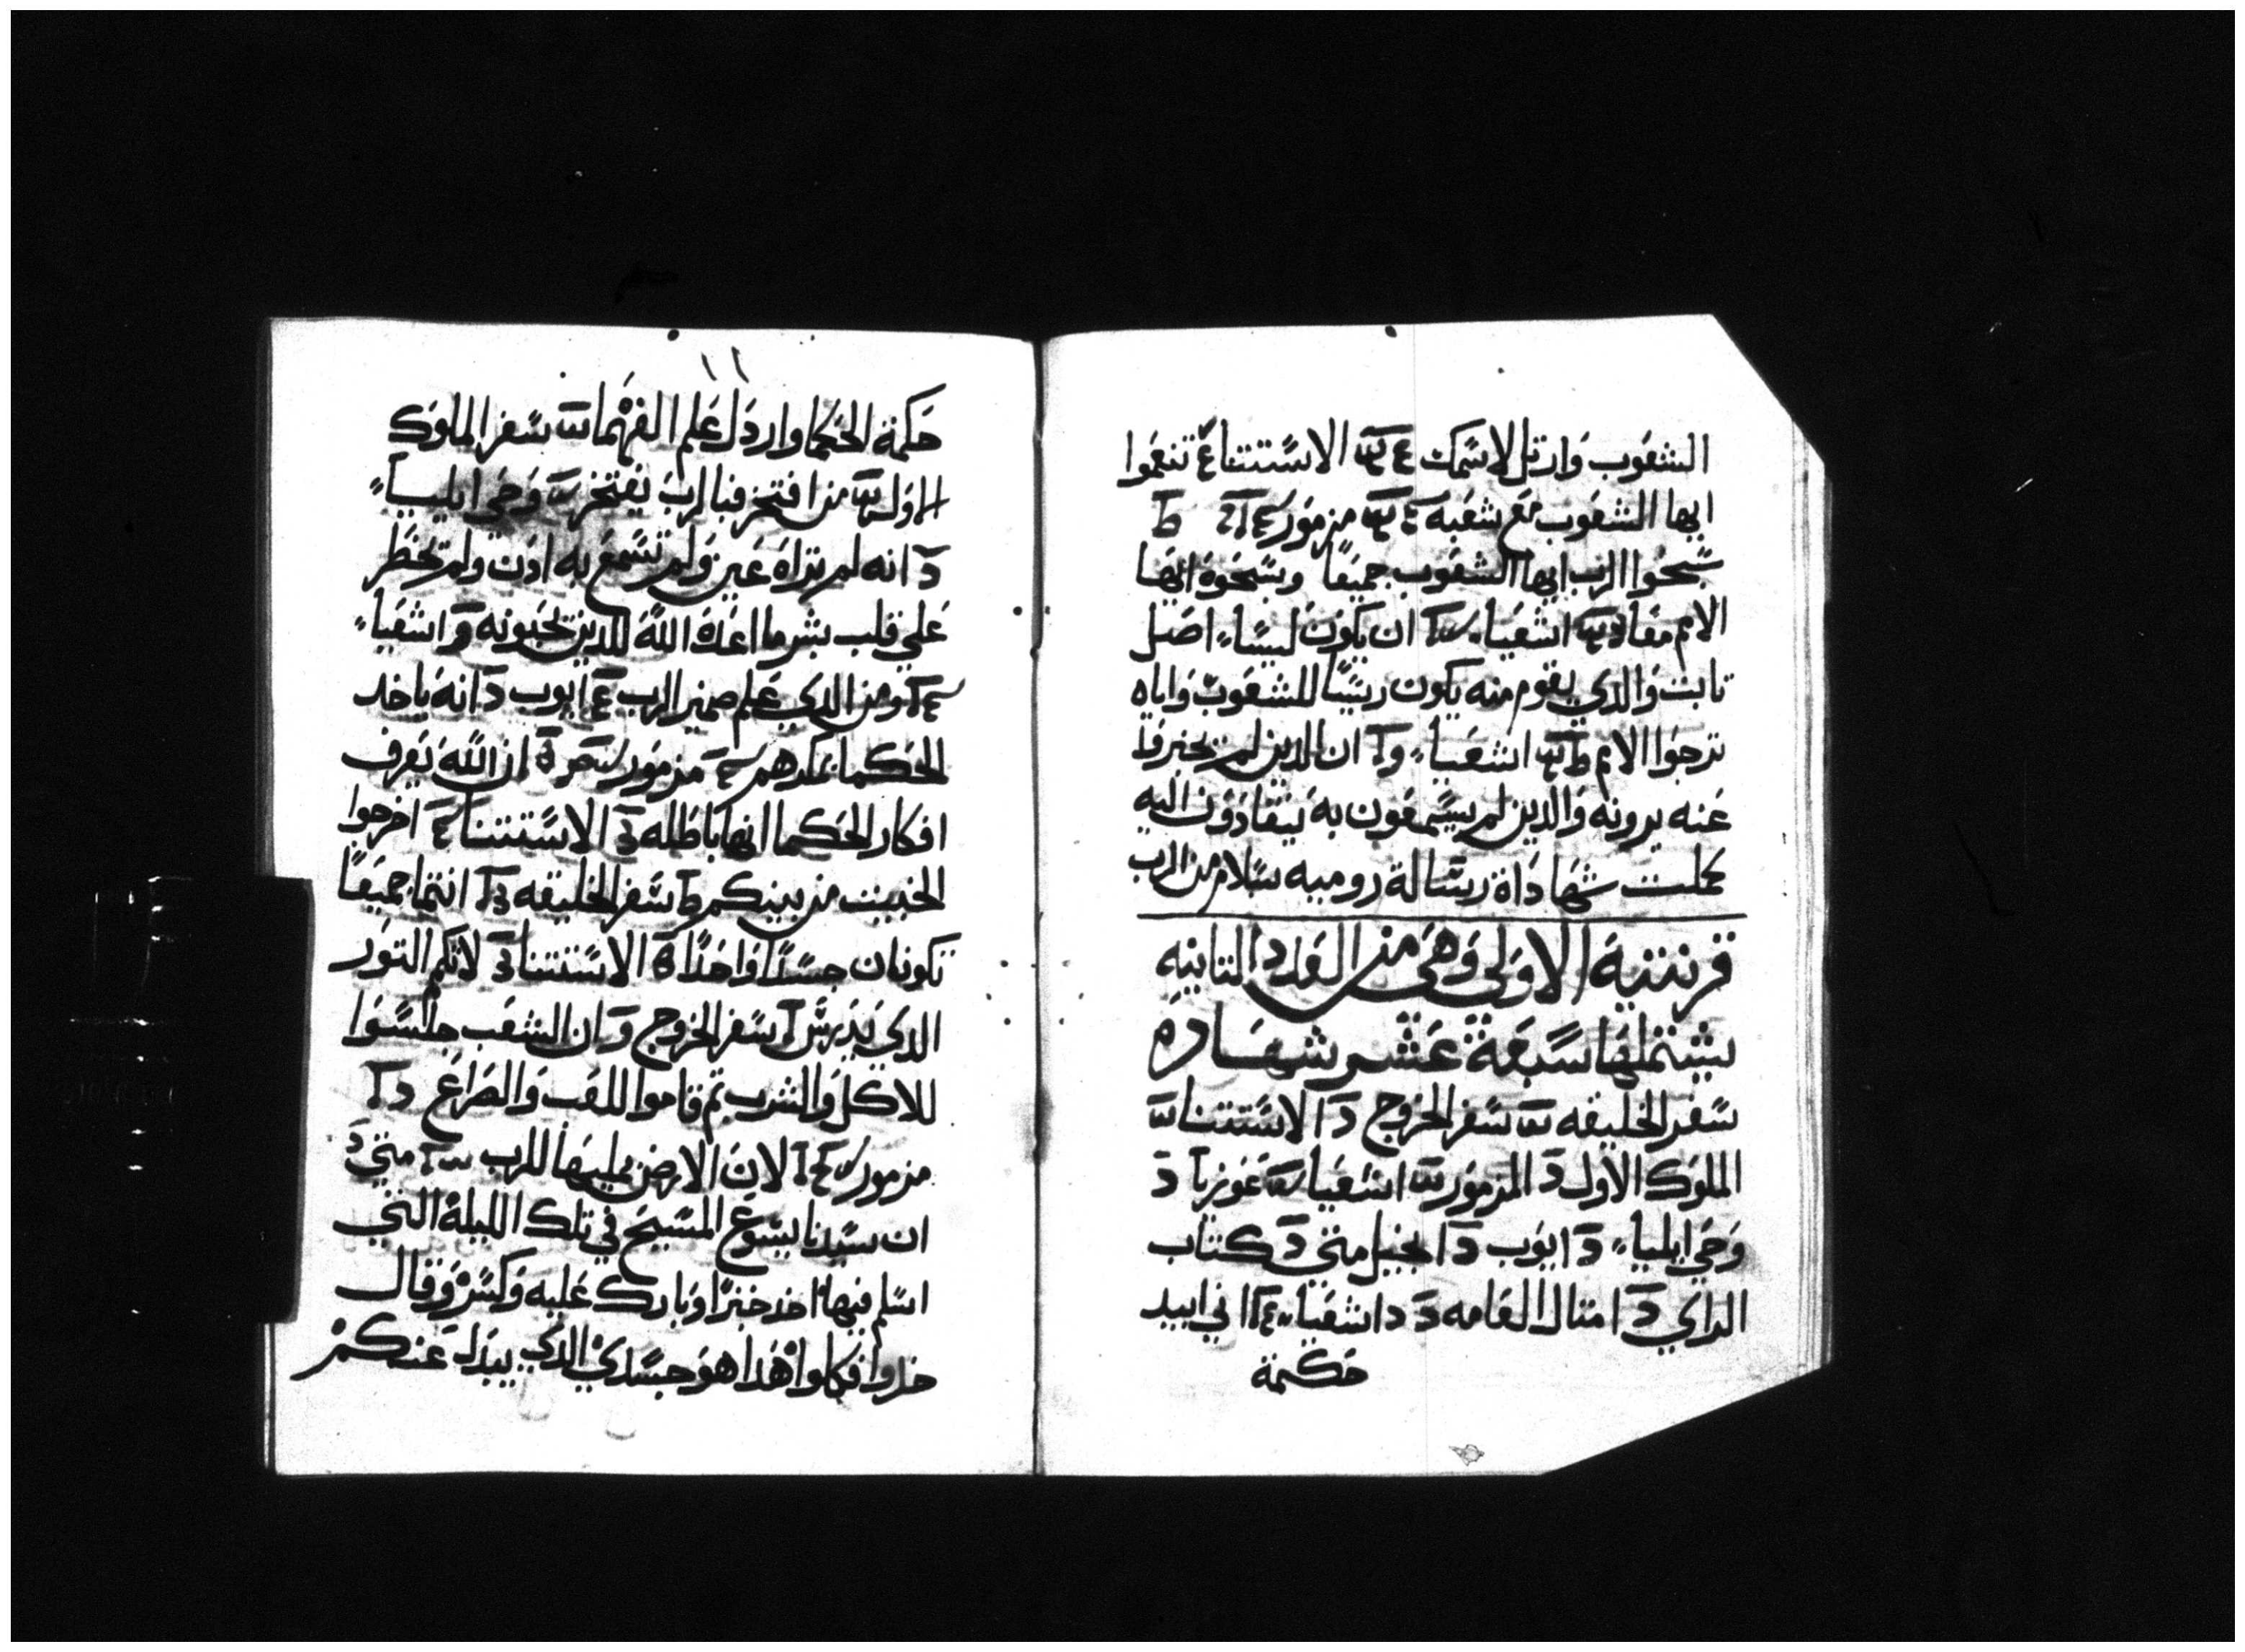 الشعوب وارتل لاسمك الاستتنا تنعموا
ايها الشعوب مع شعبه مزمور
سبحوا الرب ايها الشعوب جميعا وسبحوه ايها
الامم معا اشعيا ان يكون ليسا اصل
تابت والدي يقوم منه يكون ريسا للشعوب واياه
ترجوا الامم اشعيا ان الدين لم يخبروا
عنه يرونه والدين لم يسمعون به ينقادون اليه
كملت شهاداة رسالة روميه سلام من الرب
قرنتية الاولي وهي من العدد التانيه
يشتملها سبعة عشر شهاده
سفر الخليقه سفر الخروج الاستتنا
الملوك الاول المزمور اشعيا
وحي ايليا ايوب انجيل متي كتاب
الراي امتال العامه اشعيا اني ابيد
حكمة
١١
حكمة الحكما واردل علم الفهما سفر الملوك
الاول من افتخر فبالرب يفتخر وحي ايليا
انه لم تراه عين ولم تسمع به ادن ولم تخطر
علي قلب بشر ما اعده الله للدين يحبونه اشعيا
ومن الدي علم ضمير الرب ايوب انه ياخد
الحكما مزمور ان الله يعرف
افكار الحكما انها باطله الاستتنا اخرجوا
الخبيت من بينكم سفر الخليقه انتما جميعا
تكونان جسدا واحدا الاستتنا لاتكم التور
الدي يدرس سفر الخروج وان الشعب جلسوا
للاكل والشرب تم قاموا للعب والصراع
مزمور لان الارض للرب متي
ان سيدنا يسوع المسيح في تلك الليلة التي
اسلم فيها اخد خبزا وبارك عليه وكسر وقال
خدوا فكلوا هدا هو جسدي الدي يبدل عنكم